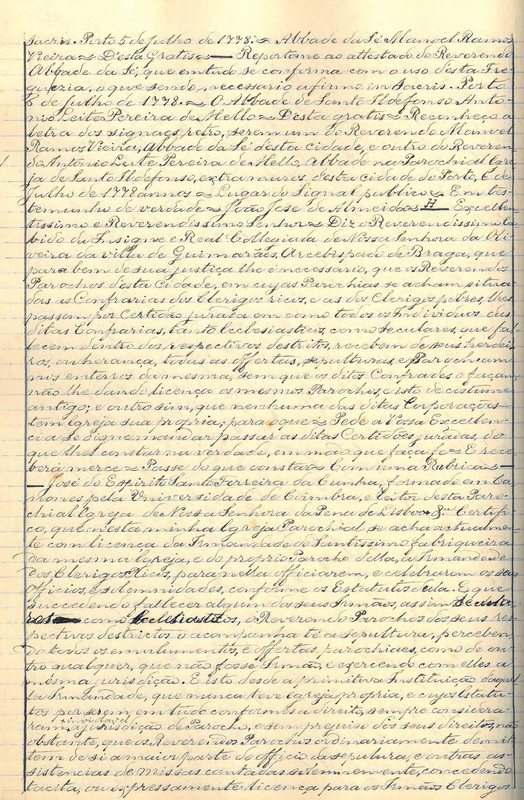 sacris. Porto 5 de Julho de 1778 = Abbade da Sé Manoel Ramos
Vieira = Désta Gratis = Reportome ao attestado do Reverendo
Abbade da Sé, que em tudo se confirma com o uso désta Fre
guezia, o que sendo necessario afirmo in Sacris. Porto
6 de Julho de 1778 = O Abbade de Santo Ildefonso Anto
nio Leite Pereira de Mello = Désta gratis = Reconheço a
letra dos signaes, retro, serem um do Reverendo Manoel
Ramos Vieira, Abbade da Sé désta Cidade, e outro do Reveren
do Antonio Leite Pereira de Mello, Abbade na Parochial Igre
ja de Santo Ildefonso, extramuros désta cidade do Porto, 6 de
Julho de 1778 annos = Lugar do Signal publico = Em tes
temunho de verdade = João José de Almeida = H = Excellen
tissimo e Reverendissimo Senhor = Diz o Reverendissimo Ca
bido da Insigne e Real Collegiada de Nossa Senhora da Oli
veira da villa de Guimarães, Arcebispado de Braga, que
para bem de sua justiça lhe é necessario, que os Reverendos
Parochos désta Cidade, em cujas Parochias se acham situa
das as Confrarias dos Clerigos ricos, e as dos Clerigos pobres, lhes
passem por Certidão jurada em como todos os individuos das
ditas Confrarias, tanto Ecclesiasticos, como seculares, que fal
lecem dentro dos respectivos destritos, recebem de seus herdei
ros, ou herança, todas as offertas, sepulturas, e Parocham
nos enterros da mesma, sem que os ditos Confrades o façam,
não lhe dando licença os mesmos Parochos, e isto de costume
antigo; e outro sim, que nenhuma das ditas Corporações
tem Igreja sua propria; para o que = Pede a Vossa Excellen
cia se digne mandar passar as ditas Certidões, juradas, do
que lhes constar na verdade, em modo que faça fé = E rece
berá mercê = Passe do que constar = Com uma Rubrica =
José do Espirito Santo Ferreira da Cunha, formado em Ca
nones pela Universidade de Coimbra, e Reitor desta Paro
chial Igreja de Nossa Senhora da Pena de Lisboa &ª Certifi
co, que nésta minha Igreja Parochial se acha actualmen
te com licença da Irmandade do Santissimo, fabriqueira
da mesma Igreja, e do proprio Parocho della, a Irmandade
dos Clerigos Ricos, para nella officiarem, e celebrarem os seus
Officios, e solemnidades, conforme os Estatutos dela. E que
succedendo fallecer algum dos seus Irmãos, assim secula
res como Ecclesiasticos, o Reverendo Parocho dos seus res
pectivos destrictos o acompanha té a sepultura, perceben
do todos os emulumentos, e offertas, parochiaes, como de ou
tro qualquer, que não fosse Irmão, e exercendo com elles a
mesma jurisdição. E isto desde a primitiva Instituição daquel
la Irmandade, que nunca teve Igreja propria, e cujos Estatu
tos por serem, em tudo conformes a direito, sempre considera
ram jurisdição de Parocho, e sem prejuiso dos seus direitos, não
obstante, que os Reverendos Parochos ordinariamente demit
tem de si a maior parte do officio da sepultura, e outras as
sistencias de missas cantadas solemnemente, concedendo
tacita, ou expressamente licença para os Irmãos Clerigos